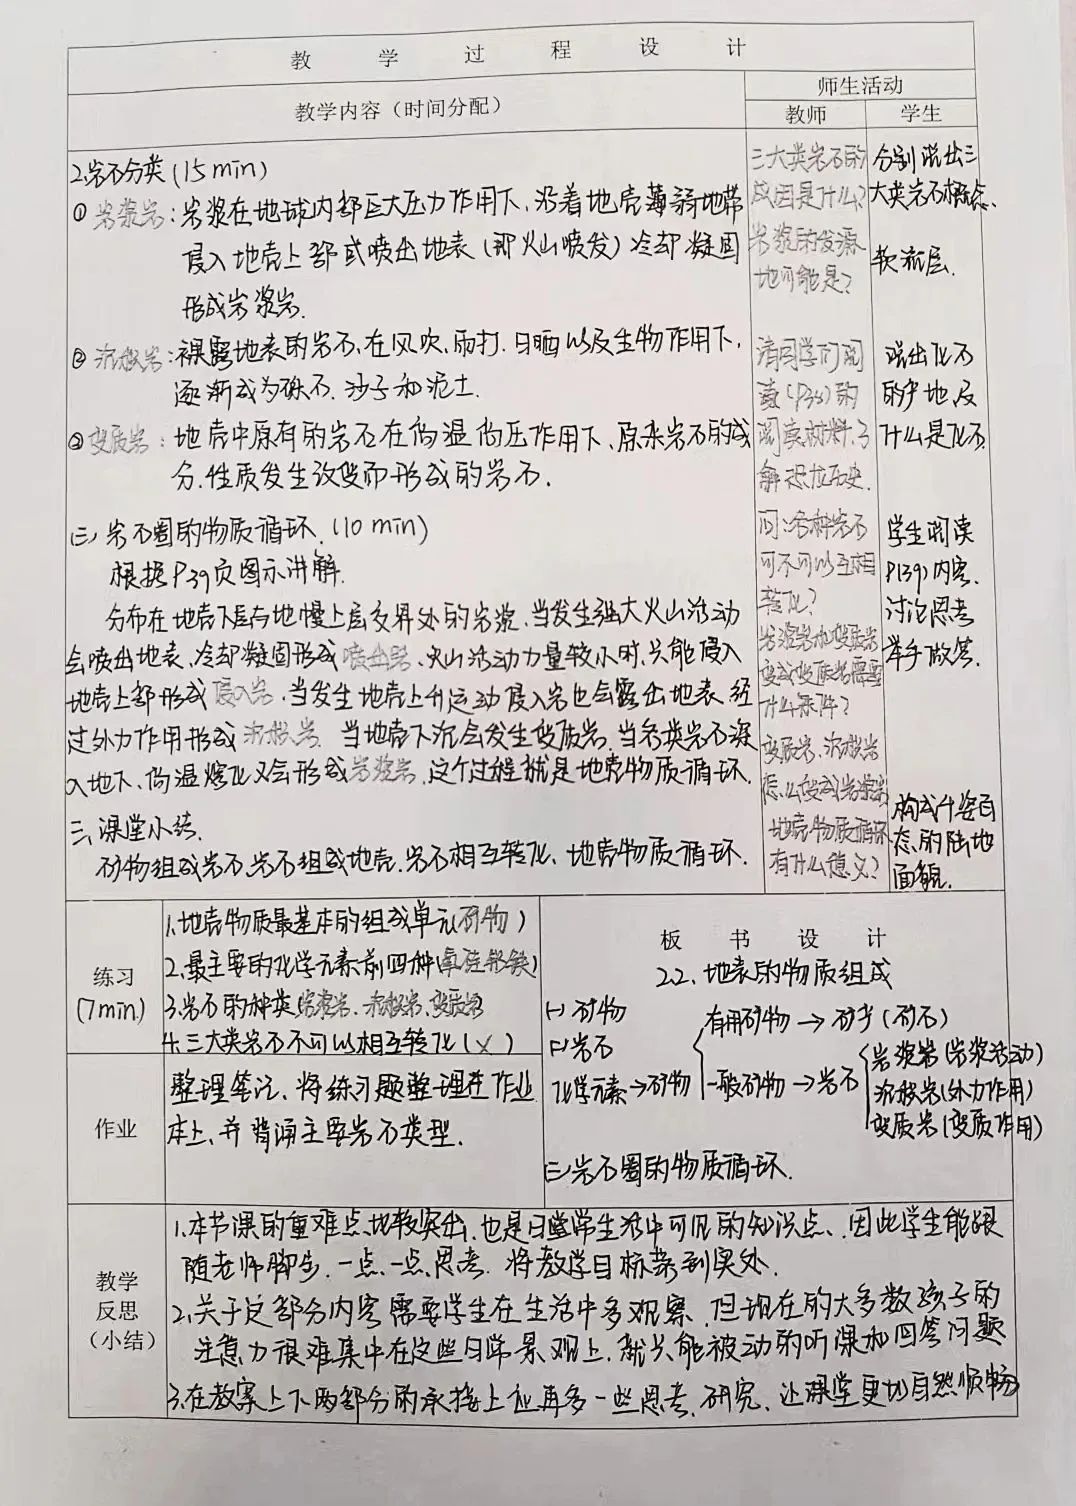 教 学 过 程 设 计
教学内容（时间分配）
师生活动
教师
学生
2.岩石分类(15min)
①岩浆岩:岩浆在地球内部巨大压力作用下,沿着地壳薄弱地带
侵入地壳上部或喷出地表(即火山喷发)冷却凝固
形成岩浆岩.
②沉积岩:裸露地表的岩石,在风吹、雨打.日晒以及生物作用下,
逐渐成为砾石.沙子和泥土.
③变质岩:地壳中原有的岩石在高温高压作用下、原来岩石的成
分.性质发生改变而形成的岩石.
(三)岩石圈的物质循环.(10min)
根据P39页图示讲解.
分布在地壳下层与地幔上层交界处的岩浆、当发生强大火山活动
会喷出地表、冷却凝固形成喷出岩.火山活动力量较小时,只能侵入
地壳上部形成侵入岩.当发生地壳上升运动侵入岩也会露出地表、经
过外力作用形成沉积岩.当地壳下沉会发生变质岩.当各类岩石深
入地下、高温熔化又会形成岩浆岩.这个过程就是地壳物质循环.
三.课堂小结.
矿物组成岩石,岩石组成地壳.岩石相互转化、地壳物质循环.
三大类岩石的
成因是什么?
岩浆的发源
地可能是?
请同学们阅
读(P38)的
阅读材料.了
解恐龙历史.
问:各种岩石
可不可以互相
转化?
岩浆岩和变质岩
变成变质岩需要
什么条件?
变质岩、沉积岩
怎么变成岩浆岩
地壳物质循环
有什么意义?
分别说出三
大类岩石概念、
软流层.
说出化石
的产地及
什么是化石.
学生阅读
P(39)内容.
讨论思考
举手做答.
构成千姿百
态的陆地
面貌.
练习
(7min)
1.地壳物质最基本的组成单元(矿物)
2.最主要的化学元素前四种(氧硅铝铁)
3.岩石的种类(岩浆岩.沉积岩、变质岩
4.三大类岩石不可以相互转化(×)
作业
整理笔记、将练习题整理在作业
本上、并背诵主要岩石类型.
板 书 设 计
2.2.地表的物质组成
(一)矿物
(二)岩石
化学元素→矿物
有用矿物→矿产(矿石)
一般矿物→岩石
岩浆岩(岩浆活动)
沉积岩(外力作用)
变质岩(变质作用)
(三)岩石圈的物质循环.
教学
反思
（小结）
1.本节课的重难点比较突出,也是日常学生活中可见的知识点、因此学生能跟
随老师脚步.一点、一点、思考.将教学目标落到实处.
2.关于这部分内容需要学生在生活中多观察.但现在的大多数孩子的
注意力很难集中在这些日常景观上.就只能被动的听课和回答问题
3.在教案上下两部分的承接上应再多一些思考.研究、让课堂更加自然顺畅